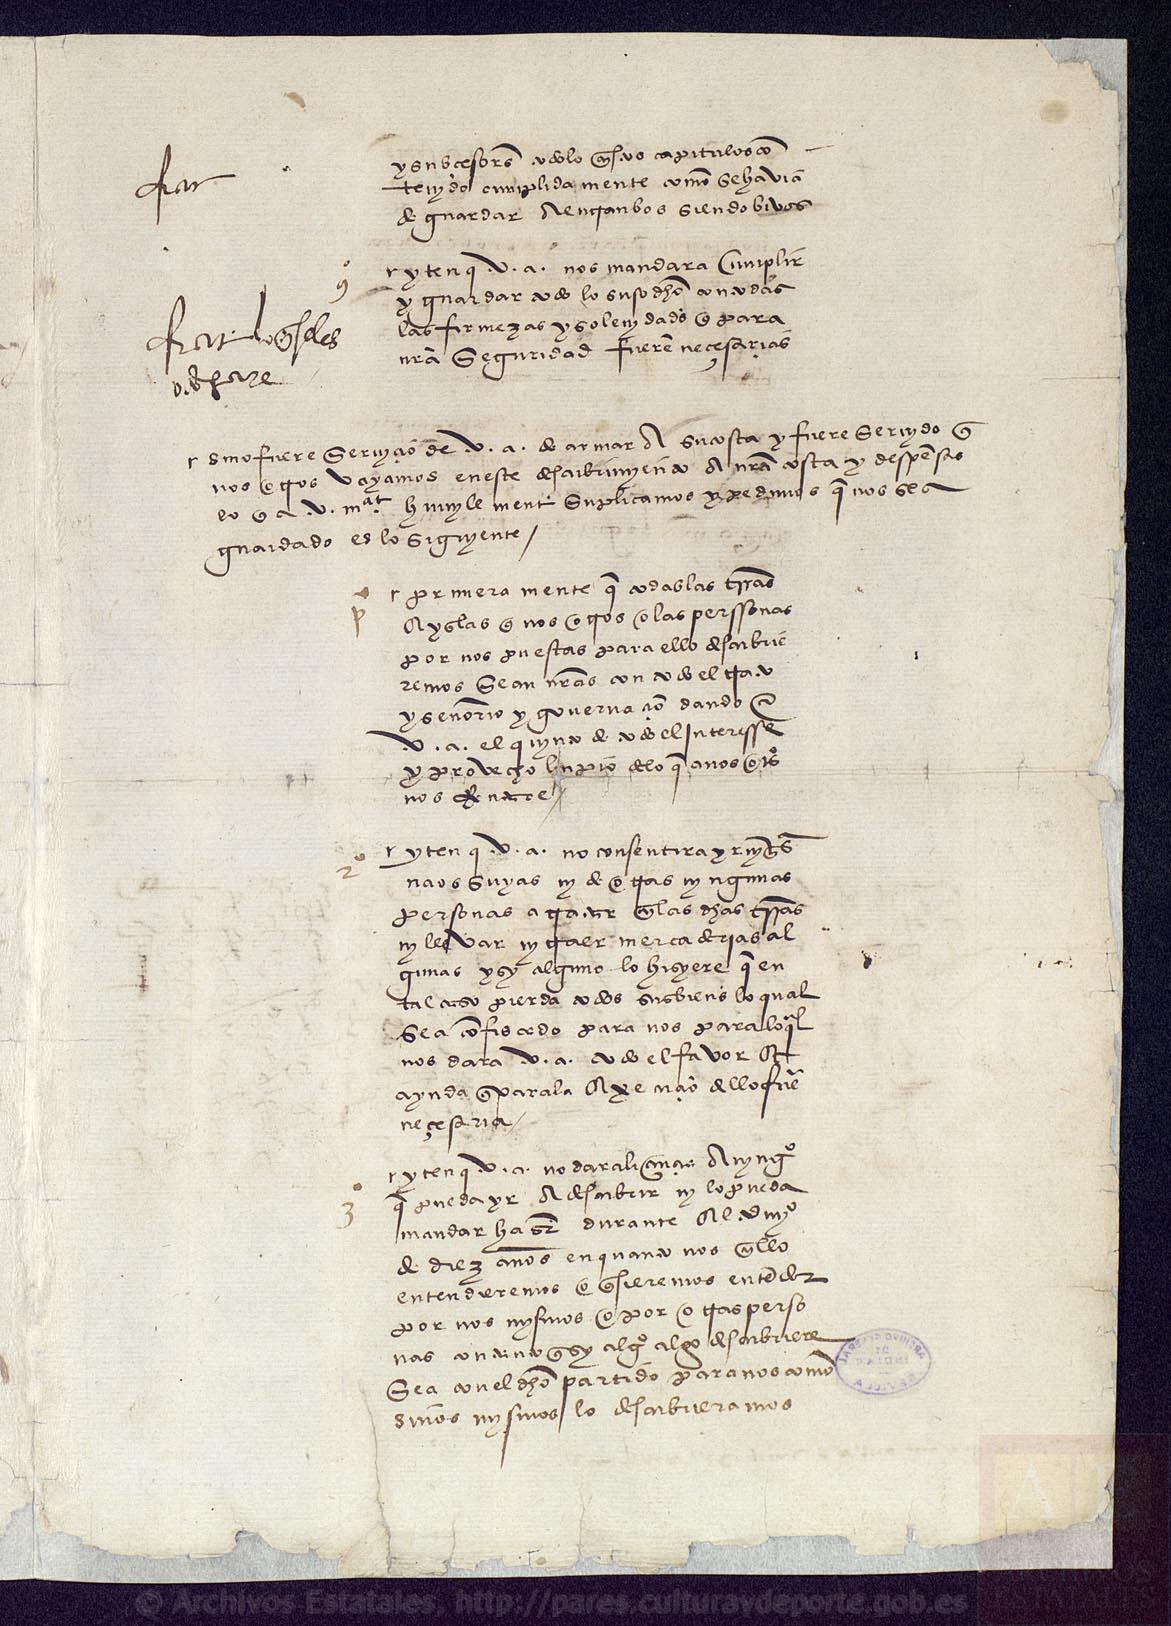 fiat
y subcesores todo en estos capitulos con
tenydo cumplidamente como se havia
de guardar a entranbos siendo bivos
9º
yten q v. a. nos mandara cumplir
y guardar todo lo susodho con todas
las firmezas y solenydades q para
nra seguridad fueren neçesarias
fiat
sino fuere serviçio de v. a. de armar a su costa y fuere servydo q
nos otros vayamos en este descubrimyento a nra costa y despensas
lo q a v. mat humylmente suplicamos y pedimos q nos sea
guardado es lo siguyente
pº
primera mente q todas las trras
a yslas q nos otros o las perssonas
por nos puestas para ello descubrie
remos sean nras con todo el trato
y senorio y governaçion dando a
v. a. el quynto de todo el interesse
y provecho linpio de lo q a nos otros
nos
2º
yten q v. a. no consentira yr nyngas
naos suyas ny de otras nyngunas
personas a tratar en las dhas trras
ny levar ny traer mercaderias al
gunas y sy alguno lo hizyere q en
tal caso pierda todos sus bienes lo qual
sea confiscado para nos para lo ql
nos dara v. a. todo el favor
ayuda q para la dello fuere
neçesaria
3º
yten q v. a. no dara liçençia a nyngº
q pueda yr a descubrir ny lo pueda
mandar haser durante al tienpo
de diez anos en quanto nos en ello
entendieremos o quisieremos entender
por nos mysmos o por otras perso
nas con tanto q sy algº algo descubriere
sea con el dho partido para nos como
si nos mysmos lo descubrieramos
© Archivos Estatales, http://pares.culturaydeporte.gob.es